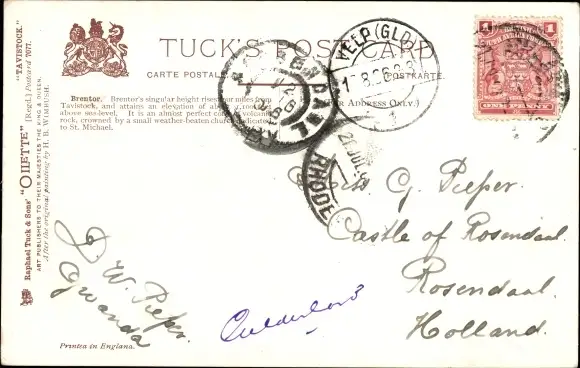 TUCK'S POST CARD
CARTE POSTALE
POSTKARTE.
Brentor. Brentor's singular height rises four miles from
Tavistock, and attains an elevation of
above sea-level. It is an almost perfect
rock, crowned by a small weather-beaten church dedicated
to St. Michael.
ADDRESS ONLY.)
Raphael Tuck & Sons' "OILETTE" [Regd.] Postcard 7077. "TAVISTOCK."
ART PUBLISHERS TO THEIR MAJESTIES THE KING & QUEEN
After the original painting by H. B. WIMBUSH.
VELP (GLD.)
RHODE
1 1
ONE PENNY
Miss G. Pieper.
Castle of Rosendaal
Rosendaal.
Holland.
J W. Pieper.
Gwanda
Gulderland
Printed in England.